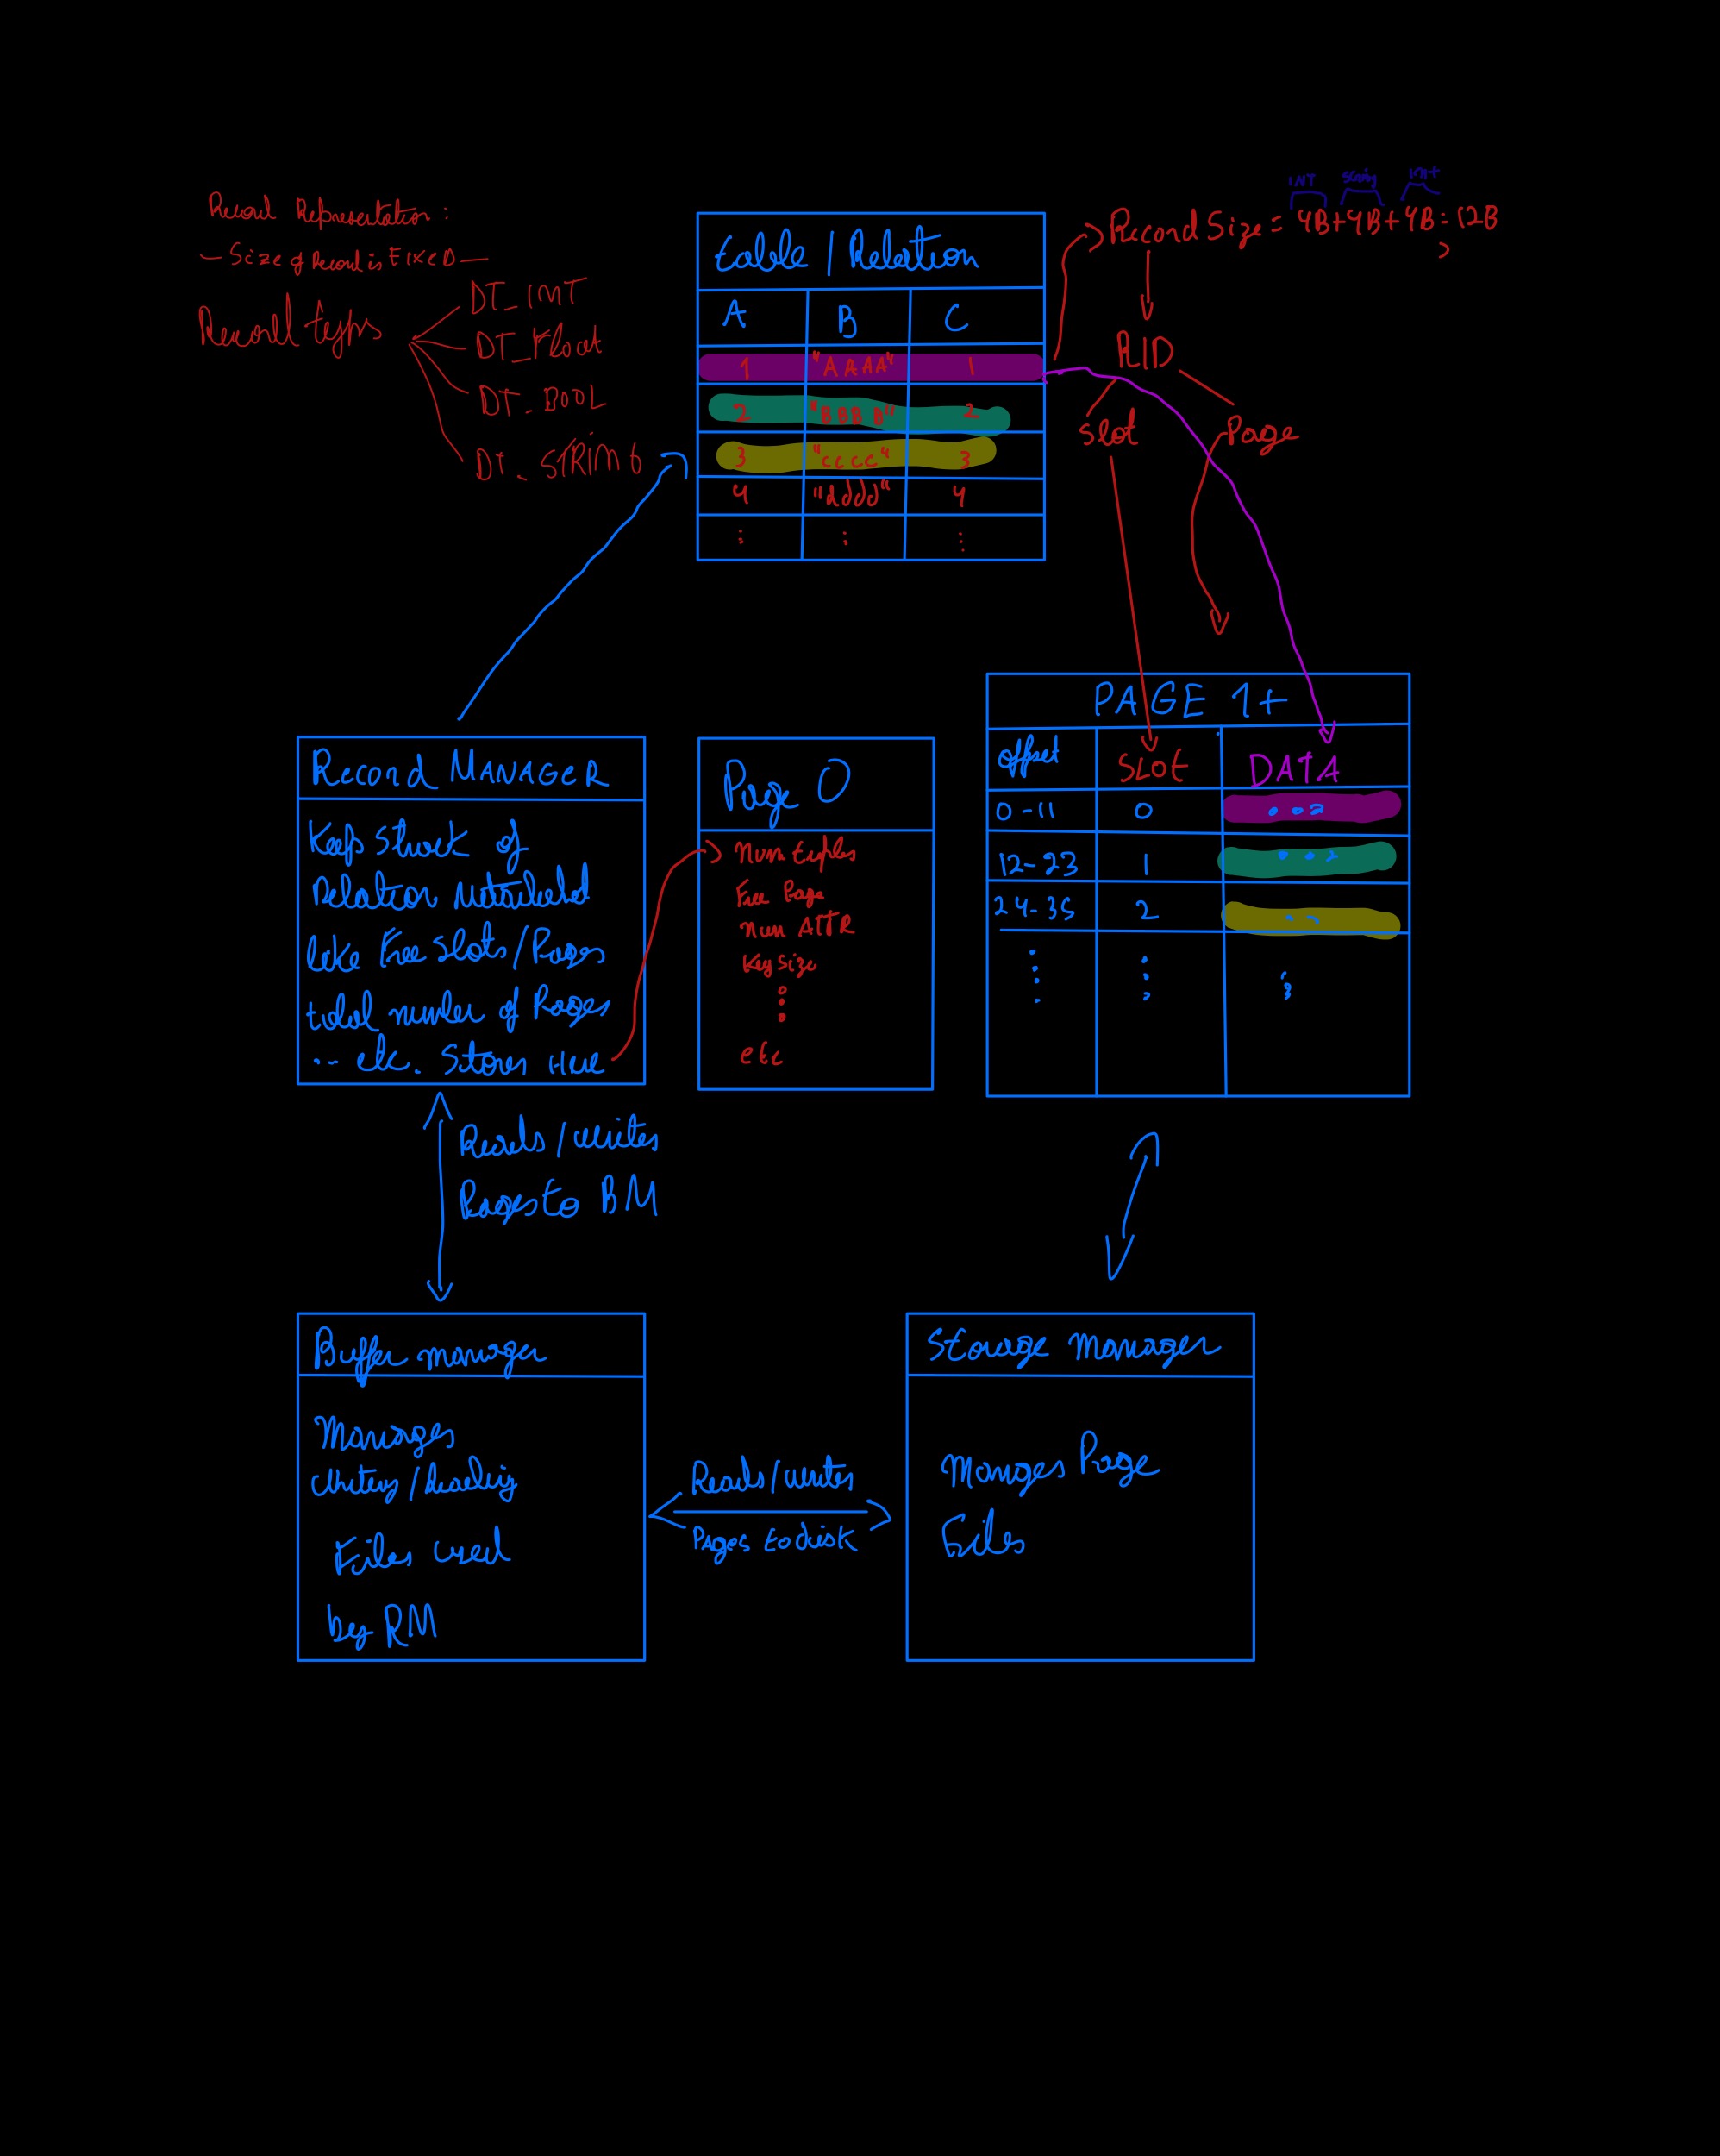 INT string int
Record Size = 4B+4B+4B=12B
Record Representation :
— Size of Record is FIXED —
Record types
DT_INT
DT_Float
DT_BOOL
DT_STRING
table / Relation
A B C
1 "AAAA" 1
2 "BBBB" 2
3 "cccc" 3
4 "dddd" 4
⋮ ⋮ ⋮
RID
Slot
Page
RECORD MANAGER
Keeps of
Relation
like Free Slots/Pages
total number of Pages
... etc. Stores Here
Page 0
Num tuples
Free Page
Num ATTR
Key Size
⋮
etc
PAGE 1+
offset SLOT DATA
0-11 0 ...
12-23 1 ...
24-35 2 ..
⋮ ⋮ ⋮
Reads/writes
Pages to BM
Buffer manager
Manages
Writing/Reading
Files used
by RM
Reads/writes
Pages to disk
Storage manager
Manges Page
Files